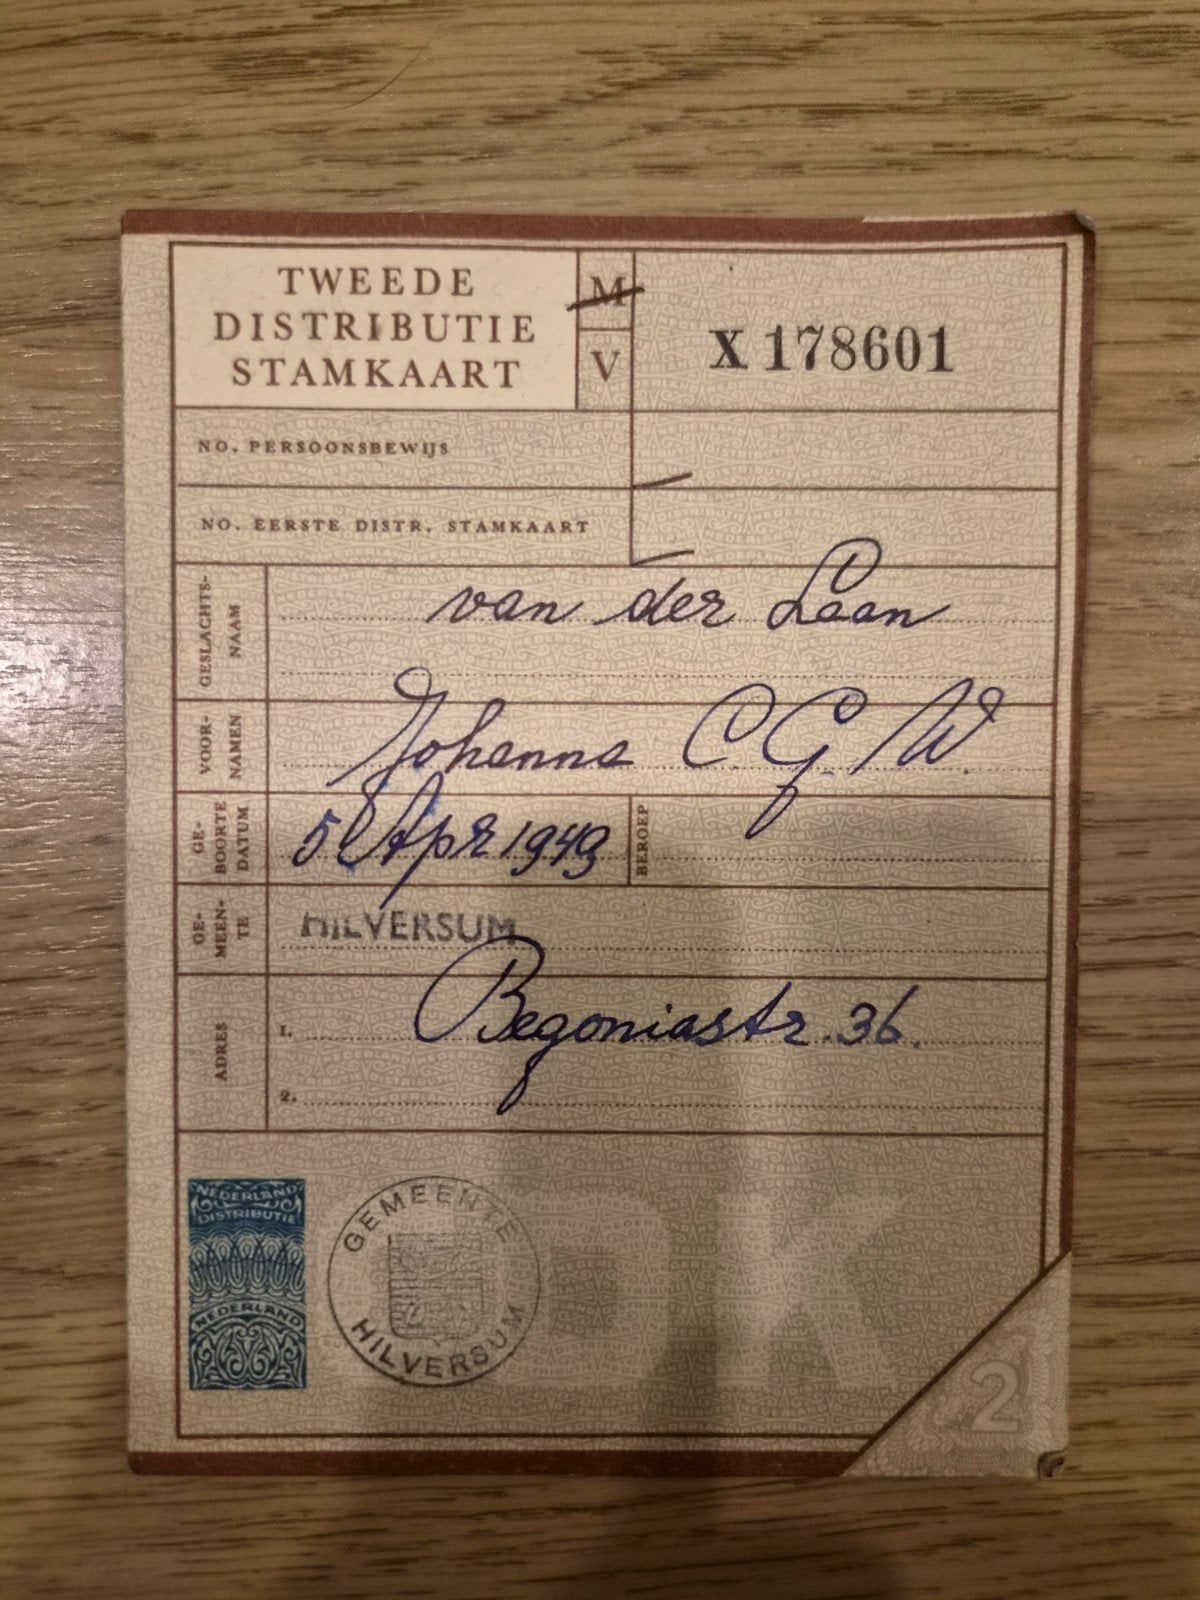 TWEEDE
DISTRIBUTIE
STAMKAART
M
V
X 178601
NO. PERSOONSBEWIJS
NO. EERSTE DISTR. STAMKAART
GESLACHTS-
NAAM
van der Laan
VOOR-
NAMEN
Johanna C. G. W.
GE-
BOORTE
DATUM
5 Apr 1949
BEROEP
GE-
MEEN-
TE
HILVERSUM
ADRES
1. Begoniastr. 36.
2.
NEDERLAND
DISTRIBUTIE
NEDERLAND
GEMEENTE
HILVERSUM
DK
2